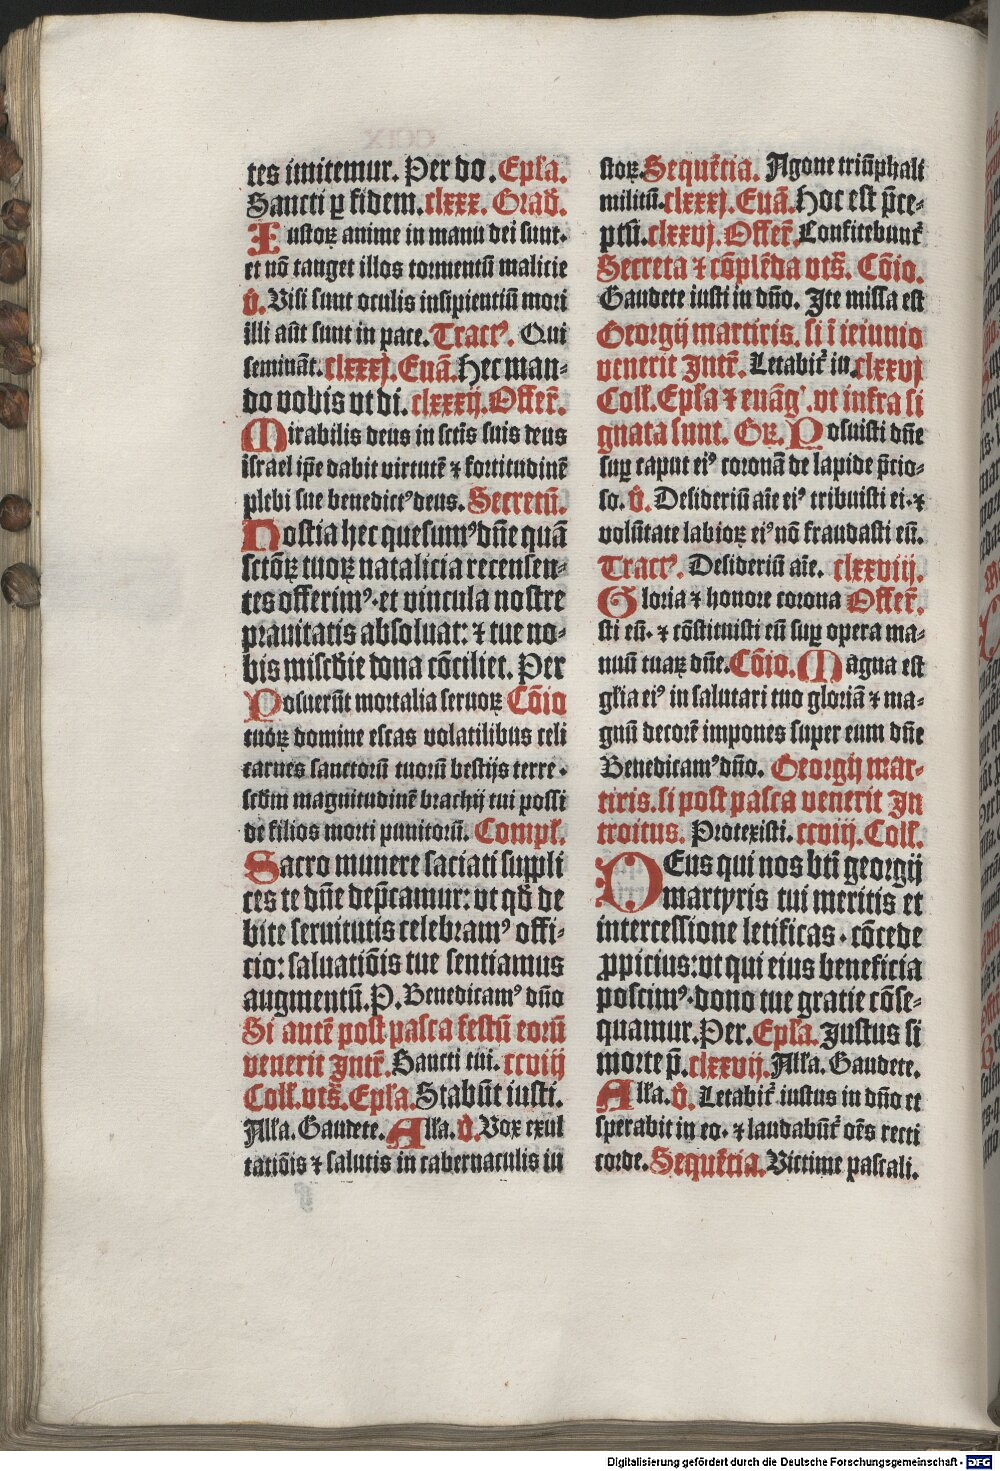 tes imitemur. Per do. Epła.
Sancti ꝑ fidem. clxxx. Grad̄.
Iustoꝝ anime in manu dei sunt.
et nō tanget illos tormentū malicie
v̄. Visi sunt oculis insipientiū mori
illi aūt sunt in pace. Tractꝰ. Qui
semināt. clxxxj. Euā. Hec man-
do vobis vt di. clxxxij. Offer̄.
Mirabilis deus in sctīs suis deus
israel ip̄e dabit virtutē ⁊ fortitudinē
plebi sue benedictꝰ deus. Secretū.
Hostia hec quesumꝰ dn̄e quā
sctōꝝ tuoꝝ natalicia recensen-
tes offerimꝰ. et vincula nostre
prauitatis absoluat: ⁊ tue no-
bis miscd̄ie dona cōciliet. Per
Posuerūt mortalia seruoꝝ Cōio
tuoꝝ domine escas volatilibus celi
carnes sanctorū tuorū bestijs terre.
scd̄m magnitudinē brachij tui possi
de filios morti punitorū. Compł.
Sacro munere saciati suppli
ces te dn̄e dep̄camur: vt qd̄ de
bite seruitutis celebramꝰ offi-
cio: saluatiōis tue sentiamus
augmentū. P. Benedicamꝰ dn̄o
Si autē post pasca festū eorū
venerit Intr̄. Sancti tui. ccviij
Coll̄. vts̄. Epła. Stabūt iusti.
Ałła. Gaudete. Ałła. v̄. Vox exul
tatiōis ⁊ salutis in tabernaculis iu
stoꝝ. Sequētia. Agone triūphali
militū. clxxxj. Euā. Hoc est p̄ce-
ptū. clxxvj. Offer̄. Confitebunt᷑
Secreta ⁊ cōplēda vts̄. Cōio.
Gaudete iusti in dn̄o. Ite missa est
Georgij martiris. si ī ieiunio
venerit Intr̄. Letabit᷑ in. clxxvj
Coll̄. Epła ⁊ euāg̕. vt infra si
gnata sunt. Gr̄. Posuisti dn̄e
suꝑ caput eiꝰ coronā de lapide p̄cio-
so. v̄. Desideriū aīe eiꝰ tribuisti ei. ⁊
volūtate labioꝝ eiꝰ nō fraudasti eū.
Tractꝰ. Desideriū aīe. clxxviij.
Gloria ⁊ honore corona Offer̄.
sti eū. ⁊ cōstituisti eū suꝑ opera ma-
nuū tuaꝝ dn̄e. Cōio. Magna est
głia eiꝰ in salutari tuo gloriā ⁊ ma-
gnū decorē impones super eum dn̄e
Benedicamꝰ dn̄o. Georgij mar-
tiris. si post pasca venerit In
troitus. Protexisti. ccviij. Coll̄.
DEus qui nos bt̄i georgij
martyris tui meritis et
intercessione letificas. cōcede
ꝓpicius: vt qui eius beneficia
poscimꝰ. dono tue gratie cōse-
quamur. Per. Epła. Iustus si
morte p̄. clxxvij. Ałła. Gaudete.
Ałła. v̄. Letabit᷑ iustus in dn̄o et
sperabit in eo. ⁊ laudabūt᷑ oēs recti
corde. Sequētia. Victime pascali.
Digitalisierung gefördert durch die Deutsche Forschungsgemeinschaft - DFG